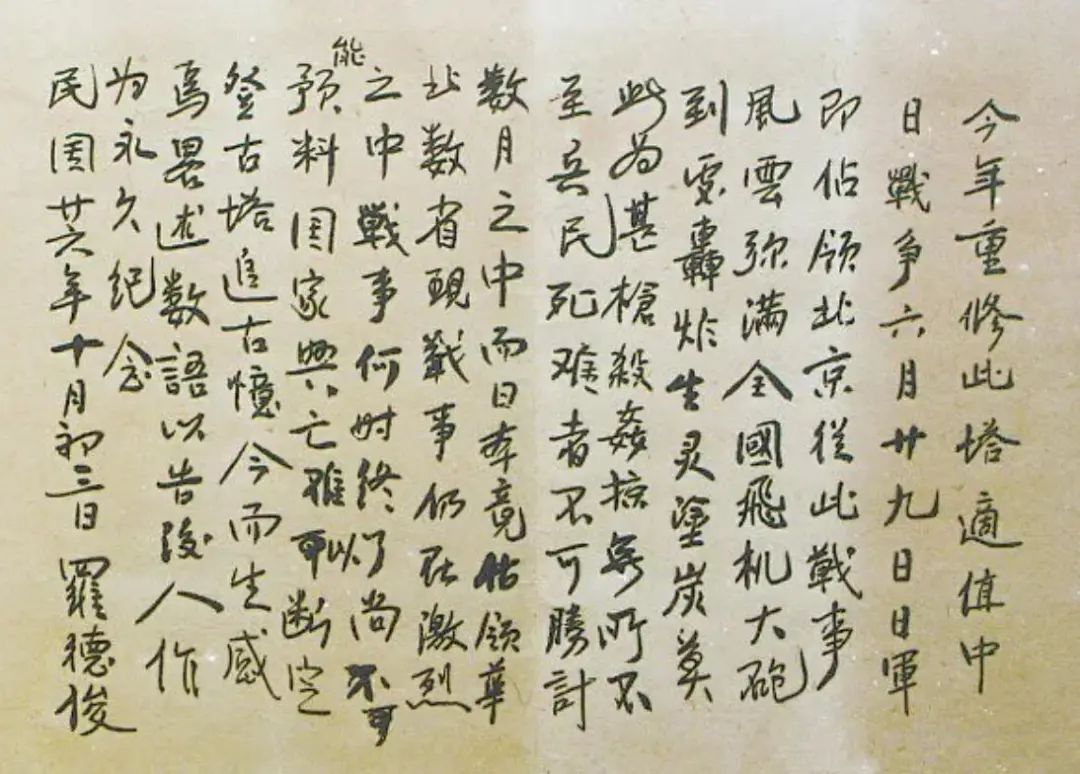 今年重修此塔適值中
日戰爭六月廿九日日軍
即佔領北京從此戰事
風雲弥滿全國飛机大砲
到處轟炸生灵塗炭莫
此为甚槍殺姦掠無所不
至兵民死难者不可勝計
数月之中而日本竟佔領華
北数省現戰事仍在激烈
之中戰事何时终了尚不可
能预料国家興亡難以断定
登古塔追古憶今而生感
焉畧述数語以告後人作
为永久纪念
民国廿六年十月初三日 羅德俊